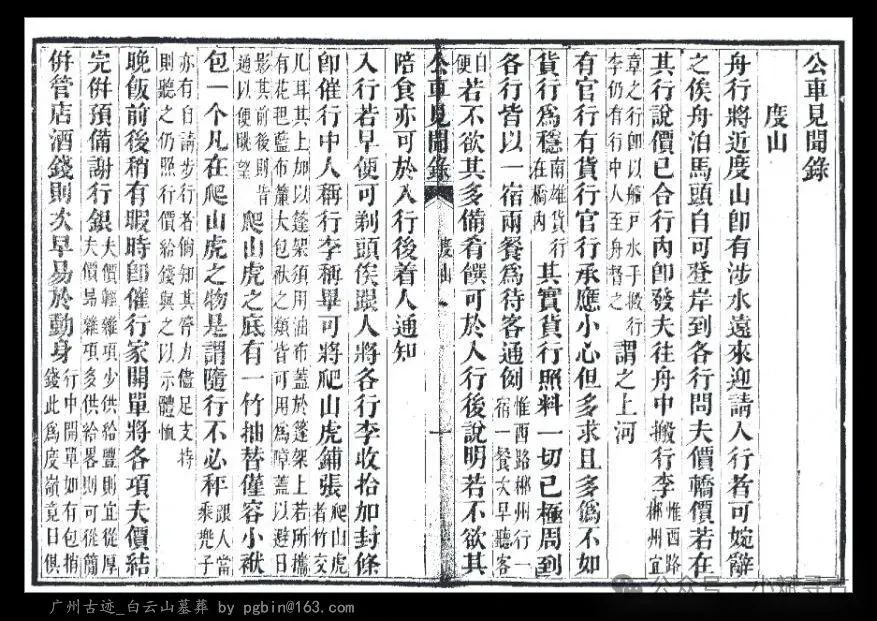 公車見聞錄
度山
舟行將近度山卽有涉水遠來迎請入行者可婉辭
之俟舟泊馬頭自可登岸到各行問夫價轎價若在
其行說價已合行內卽發夫往舟中搬行李惟西路郴州宜
章之行卽以船戶水手搬行李仍有行中人至舟督之謂之上河
有官行有貨行官行承應小心但多求且多偽不如
貨行爲穩南雄貨行在橋內其實貨行照料一切已極周到
各行皆以一宿兩餐爲待客通例惟西路郴州行一宿一餐次早聽客
自便若不欲其多備肴饌可於入行後說明若不欲其
公車見聞錄 度山 一
陪食亦可於入行後着人通知
入行若早便可剃頭俟跟人將各行李收拾加封條
卽催行中人稱行李稱畢可將爬山虎鋪張爬山虎者竹交
几耳其上加以篷架須用油布蓋於篷架上若所攜有花毡藍布簾大包袱之類皆可用爲障蓋以避日
影其前後則皆適以便眺望爬山虎之底有一竹抽替僅容小袱
包一个凡在爬山虎之物是謂隨行不必秤跟人當乘兜子
亦有自請步行者倘知其膂力儘足支持則聽之仍照行價給錢與之以示體恤
晚飯前後稍有暇時卽催行家開單將各項夫價結
完併預備謝行銀夫價輕雜項少供給豐則宜從厚夫價昴雜項多供給畧則可從簡
併管店酒錢則次早易於動身行中開單如有包捎錢此爲度嶺竟日俱
公众号·小斌寻古
广州古迹_白云山墓葬 by pgbin@163.com